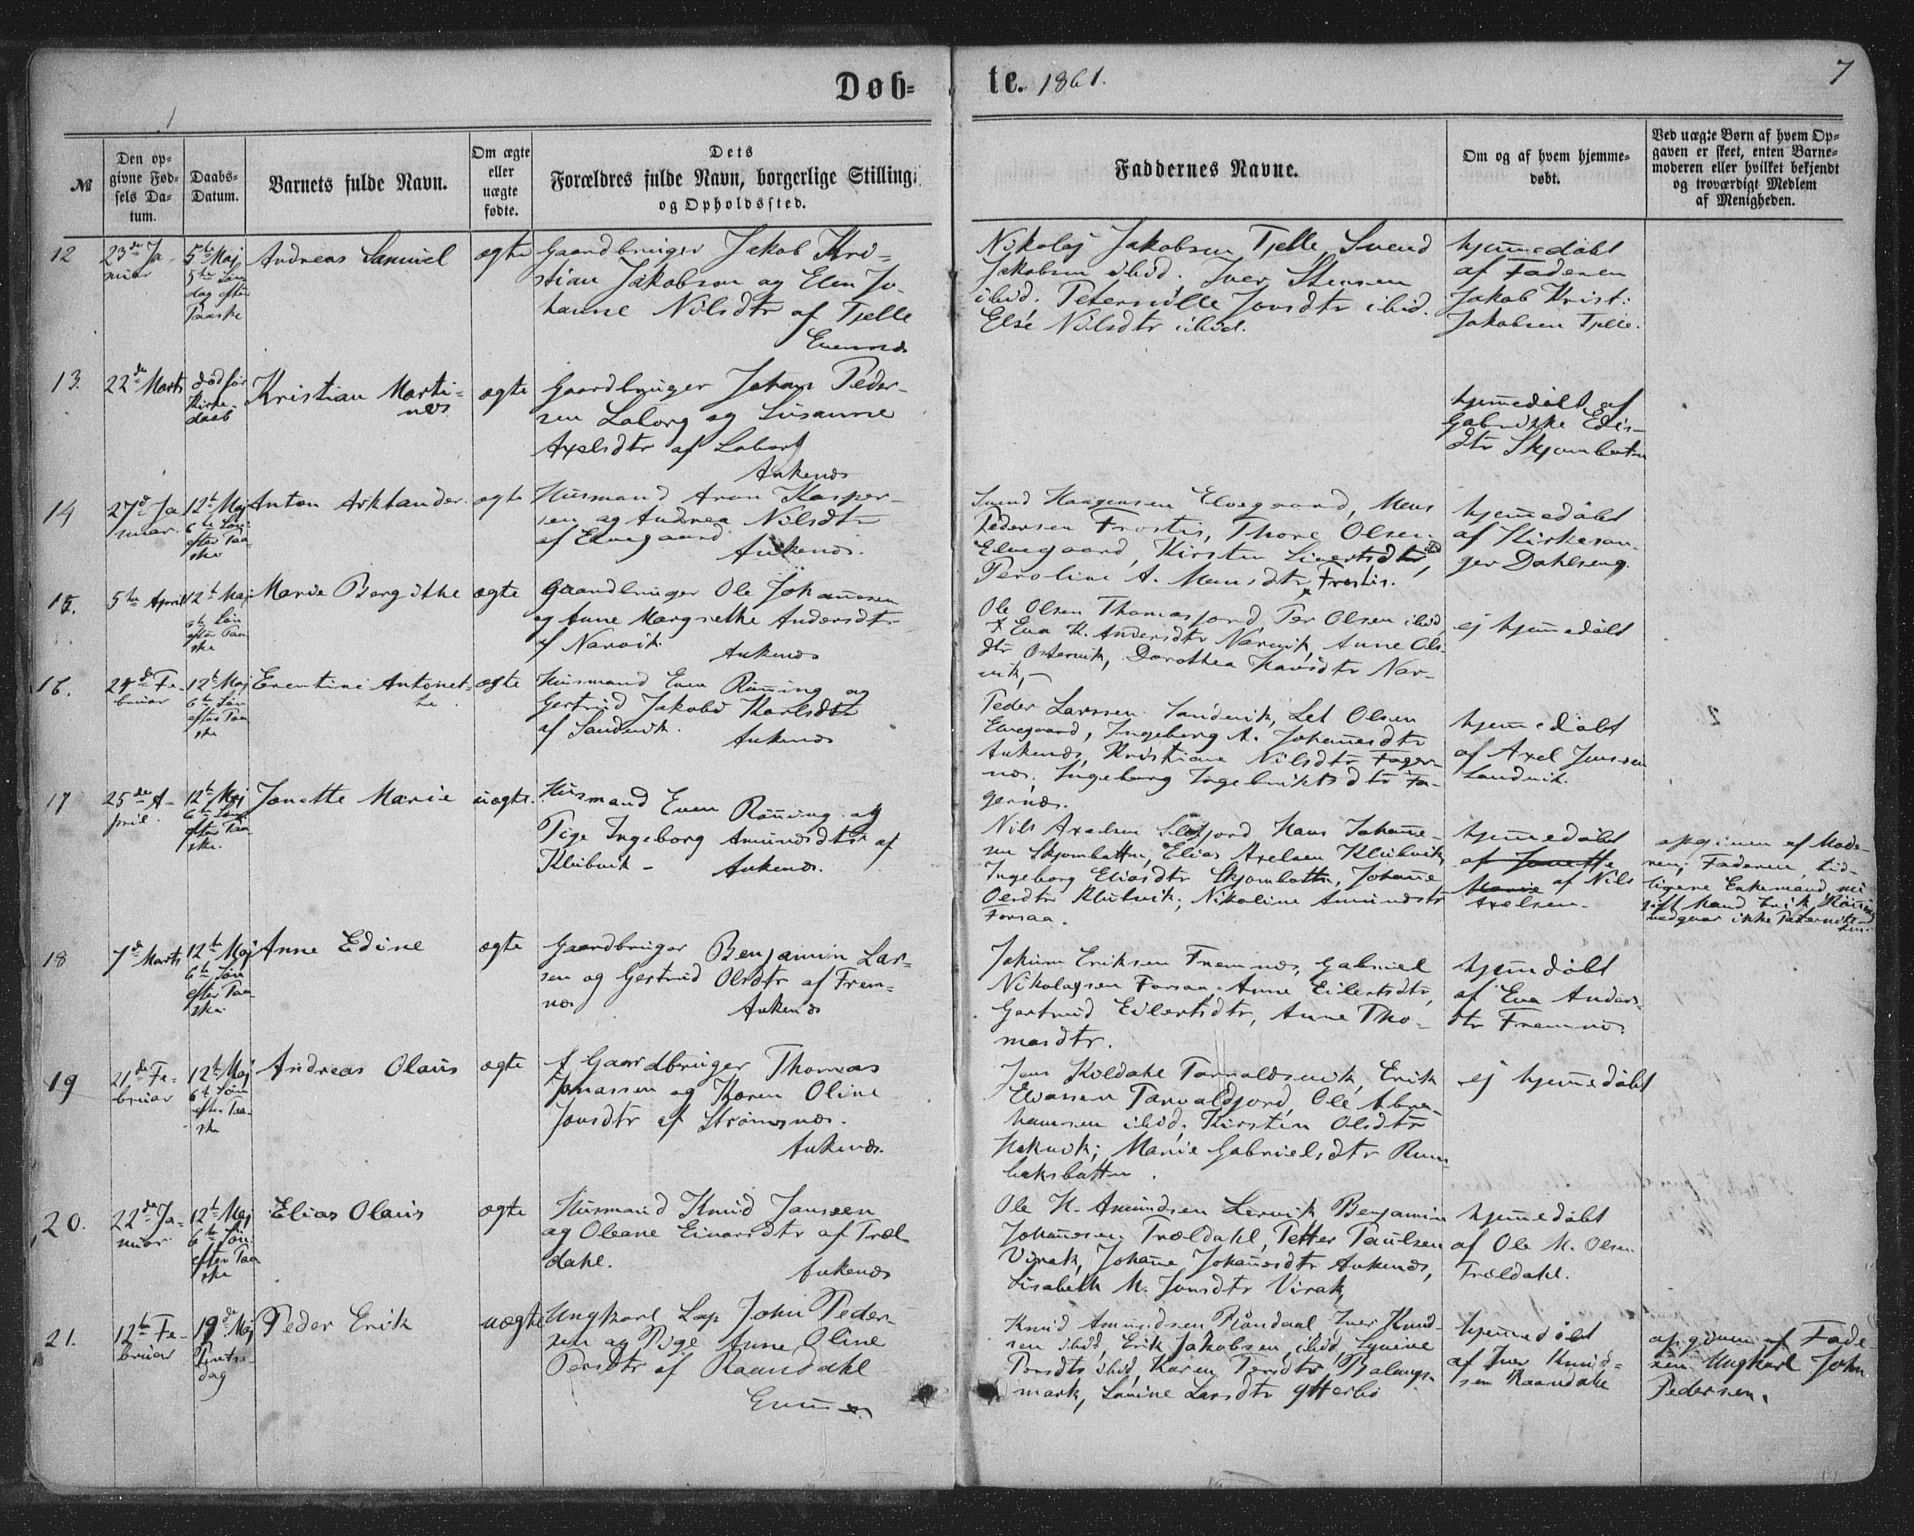 Døb-
te. 1861.
7
№
Den op-
givne Fød-
sels Da-
tum.
Daabs-
Datum.
Barnets fulde Navn.
Om ægte
eller
uægte
fødte.
Dets
Forældres fulde Navn, borgerlige Stilling,
og Opholdssted.
Faddernes Navne.
Om og af hvem hjemme-
døbt.
Ved uægte Børn af hvem Op-
gaven er skeet, enten Barne-
moderen eller hvilket bekjendt
og troværdigt Medlem
af Menigheden.
12
23de Ja-
nuar
5te Maj
5te Søn
dag efter
Paaske
Andreas Samuel
ægte
Gaardbruger Jakob Kri-
stian Jakobsen og Elen Jo-
hanne Nilsdtr af Tjelle
Evennæs
Nikolaj Jakobsen Tjelle, Svend
Jakobsen ibid. Iver Stensen
ibid. Peternille Jonsdtr ibid.
Else Nilsdtr ibid.
hjemmedøbt
af Faderen
Jakob Krist:
Jakobsen Tjelle.
13.
22de Marts
død før
Kirke-
daab
Kristian Marti-
nus
ægte
Gaardbruger Johan Peder-
sen Loborg og Susanne
Axelsdtr af Loborg
Ankenæs
hjemmedøbt af
Gabrikke Edis-
dtr Skjombotn
14
27de Ja
nuar.
12te Maj
6te Søn
efter Paa
ske
Anton Arktander.
ægte
Husmand Aron Kasper-
sen og Andrea Nilsdtr
af Elvegaard
Ankenæs.
Svend Haagensen Elvegaard, Mons
Pedersen Frostis, Thore Olsen
Elvegaard, Kirsten Sivertsdtr ibid,
Peroline A. Monsdtr Frostis.
hjemmedøbt
af Kirkesan-
ger Dahlseng.
15.
5te April
12te Maj
6te Søn
efter Paa
ske
Marie Bergithe
ægte
Gaardbruger Ole Johannesen
og Anne Margrethe Andersdtr
af Narvik
Ankenæs
Ole Olsen Thomasjord, Per Olsen ibid,
Eva K. Andersdtr Narvik, Anne Ols
dtr Østervik, Dorothea Hansdtr Nar-
vik,
ej hjemmedøbt
16.
24de Fe-
bruar
12te Maj
6te Søn
efter Paa
ske
Erentine Antonet-
te
ægte
Husmand Even Rønning og
Gertrud Jakobe Karlsdtr
af Sandvik.
Ankenæs
Peder Larssen Sandvik, Let Olsen
Elvegaard, Ingeborg A. Johannesdtr
Ankenæs, Kristiane Nilsdtr Fager-
næs. Ingeborg Ingebriktsdtr Fa-
gernæs.
hjemmedøbt
af Axel Jenssen
Sandvik.
17
25de A-
pril.
12te Maj
6te Søn
efter Paa
ske.
Jonette Marie
uægte.
Husmand Even Rønning og
Pige Ingeborg Amundsdtr af
Klubvik -
Ankenæs.
Nils Axelsen Hans Johanne-
sen Skjombotten, Elias Axelsen Klubvik,
Ingeborg Eliasdtr Skjombotten, Johanne
Olsdtr Klubvik, Nikoline Amundsdtr
Forsaa.
hjemmedøbt
af Jonette
Marie af Nils
Axelsen.
opgiven af Mode-
ren; Faderen, tid-
ligere Enkemand, nu
gift Mand
vedgaar ikke
18
7de Marts
12te Maj
6te Søn
efter Paa
ske.
Anne Edine
ægte
Gaardbruger Benjamin Lar-
sen og Gertrud Olsdtr af Frem-
næs
Ankenæs
Jokum Eriksen Fremnæs, Gabriel
Nikolaysen Forsaa, Anne Eilertsdtr,
Gertrud Eilertsdtr, Anne Tho-
masdtr.
hjemmedøbt
af Eva Anders
dtr Fremnæs
19
21de Fe-
bruar
12te Maj
6te Søn
efter Paa-
ske
Andreas Olaus
ægte
Gaardbruger Thomas
Jonassen og Karen Oline
Jonsdtr af Strømsnæs.
Ankenæs.
Jens Koldahl Torvaldsvik, Erik
Torvaldjord, Ole Abra-
hamsen ibid, Kirstin Olsdtr
Hakvik; Marie Gabrielsdtr Rum
baksbotten.
ej hjemmedøbt
20.
22de Ja-
nuar
12te Maj
6te Søn
efter Paa
ske
Elias Olaus
ægte
Husmand Knud Janssen
og Oleane Einarsdtr af Træl-
dahl.
Ankenæs
Ole K. Amundsen Lervik, Benjamin
Johannesen Trældahl, Petter Paulsen
Virak, Johanne Johannesdtr Ankenæs,
Lisabeth M. Jonsdtr Virak,
hjemmedøbt
af Ole M. Olsen
Trældahl.
21.
12te Fe-
bruar
19de Maj
Pintse-
dag
Peder Erik
uægte
Ungkarl Lap John Peder-
sen og Pige Anne Oline
Persdtr af Raandahl
Evenæs
Knud Amundsen Raandal, Iver Knud-
sen ibid, Erik Jakobsen ibid,
Persdtr ibid, Karen Persdtr Balangs-
mark, Lovine Larsdtr Ytterbø
hjemmedøbt
af Iver Knud-
sen Raandahl
opgiven af Fade-
ren Ungkarl John
Pedersen.